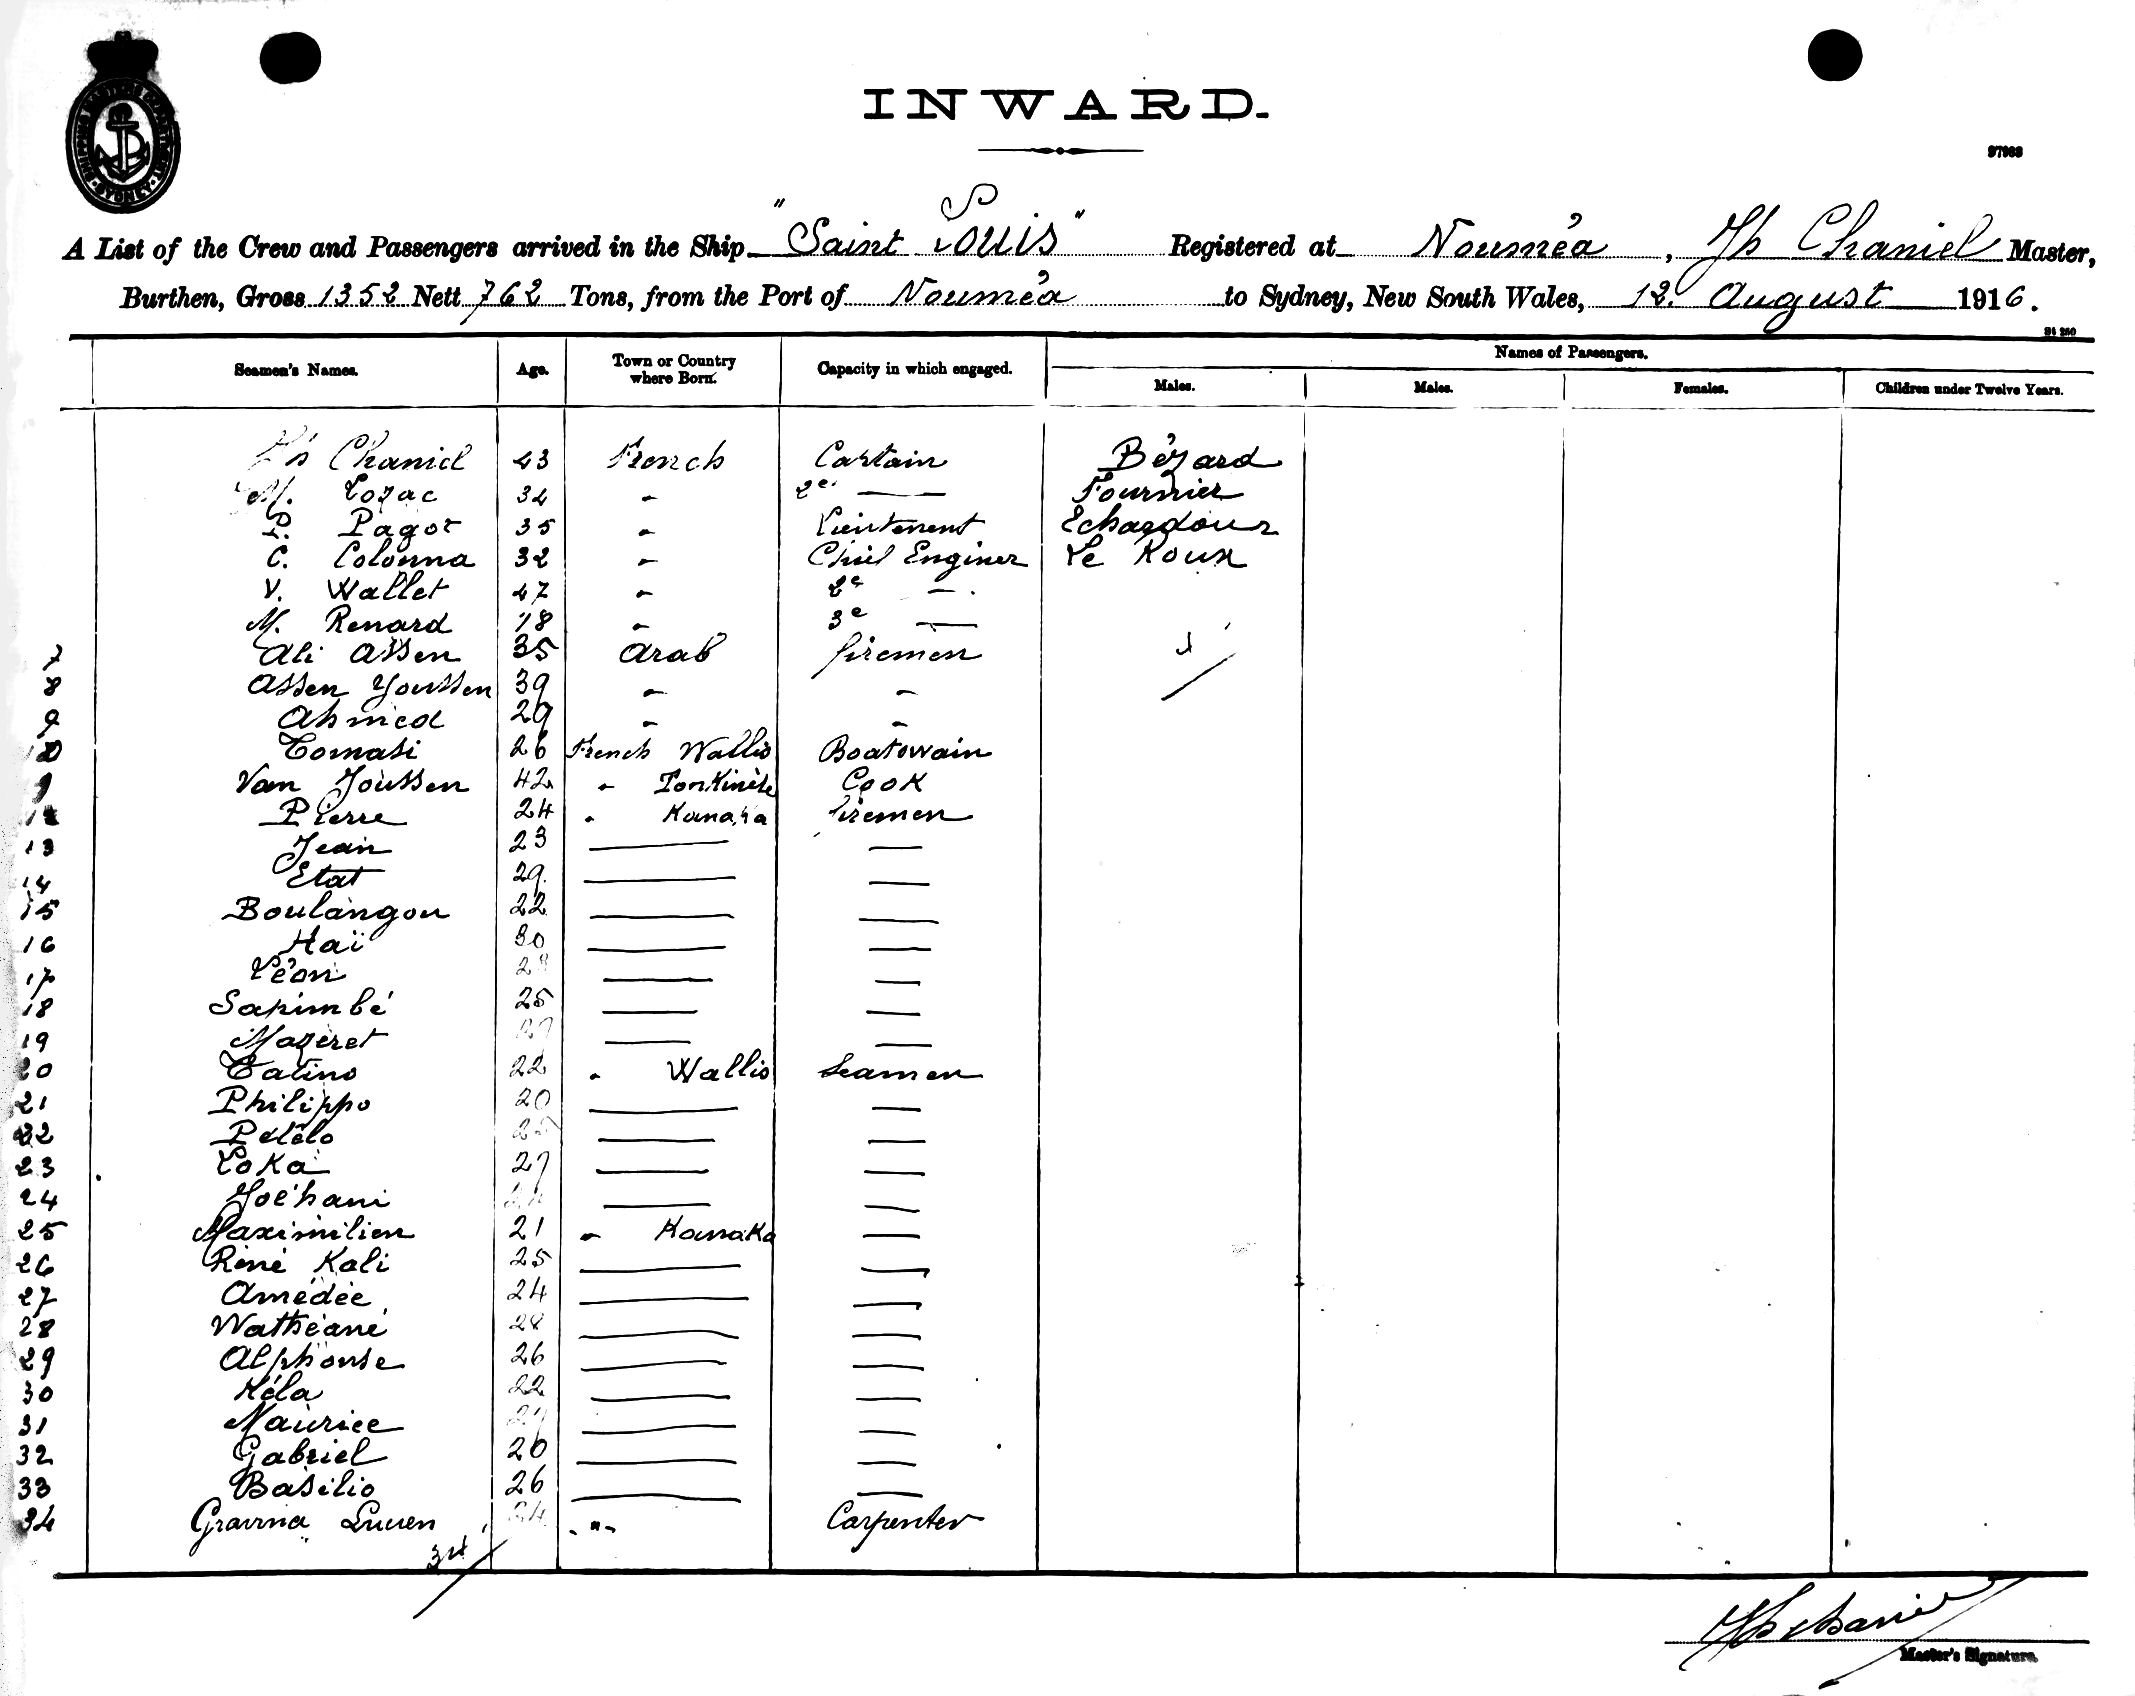 SHIPPING MASTER'S DEPARTMENT SYDNEY
INWARD.
97963
A List of the Crew and Passengers arrived in the Ship "Saint Louis" Registered at Nouméa, Jh Chaniel Master,
Burthen, Gross 1352 Nett 762 Tons, from the Port of Nouméa to Sydney, New South Wales, 12. August 1916.
Seamen's Names. Age. Town or Country where Born. Capacity in which engaged. Names of Passengers.
Males. Males. Females. Children under Twelve Years.
Chaniel 43 French Captain Bézard
M. Cozac 34 " 2e — Fournier
P. Pagot 35 " Lieutenent Echardour
C. Colonna 32 " Chief Enginer Le Roux
V. Wallet 47 " 2e —
M. Renard 48 " 3e —
7 Ali Assen 35 Arab firemen
8 Assen Youssen 39 " "
9 Ahmed 29 " "
10 Tomasi 26 French Wallis Boatswain
Van Joussen 42 " Tonkinése Cook
12 Pierre 24 " Kanaka firemen
13 Jean 23 — —
14 Etat 29. — —
15 Boulangou 22 — —
16 Haï 30 — —
17 Léon 28 — —
18 Sapimbé 25 — —
19 Mazeret — —
20 Tatino 22 " Wallis Seamen
21 Philippo 20 — —
22 Pétélo — —
23 Loka 27 — —
24 Joéhani — —
25 Maximilien 21 " Kanaka —
26 Réné Kali 25 — —
27 Amédée 24 — —
28 Wathéané 28 — —
29 Alphonse 26 — —
30 Kéla 22 — —
31 Maurice — —
32 Gabriel 20 — —
33 Basilio 26 — —
34 Gravina Lucien 34 " Carpenter
34
Jh Chaniel
Master's Signature.